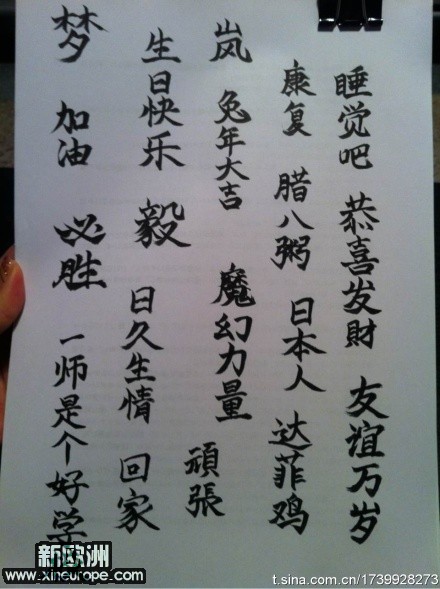 睡觉吧 恭喜发財 友谊万岁
康复 腊八粥 日本人 达菲鸡
岚 兔年大吉 魔幻力量 頑張
生日快乐 毅 日久生情 回家
梦 加油 必胜 一师是个好学
新欧洲
www.xineurope.com
t.sina.com.cn/1739928273